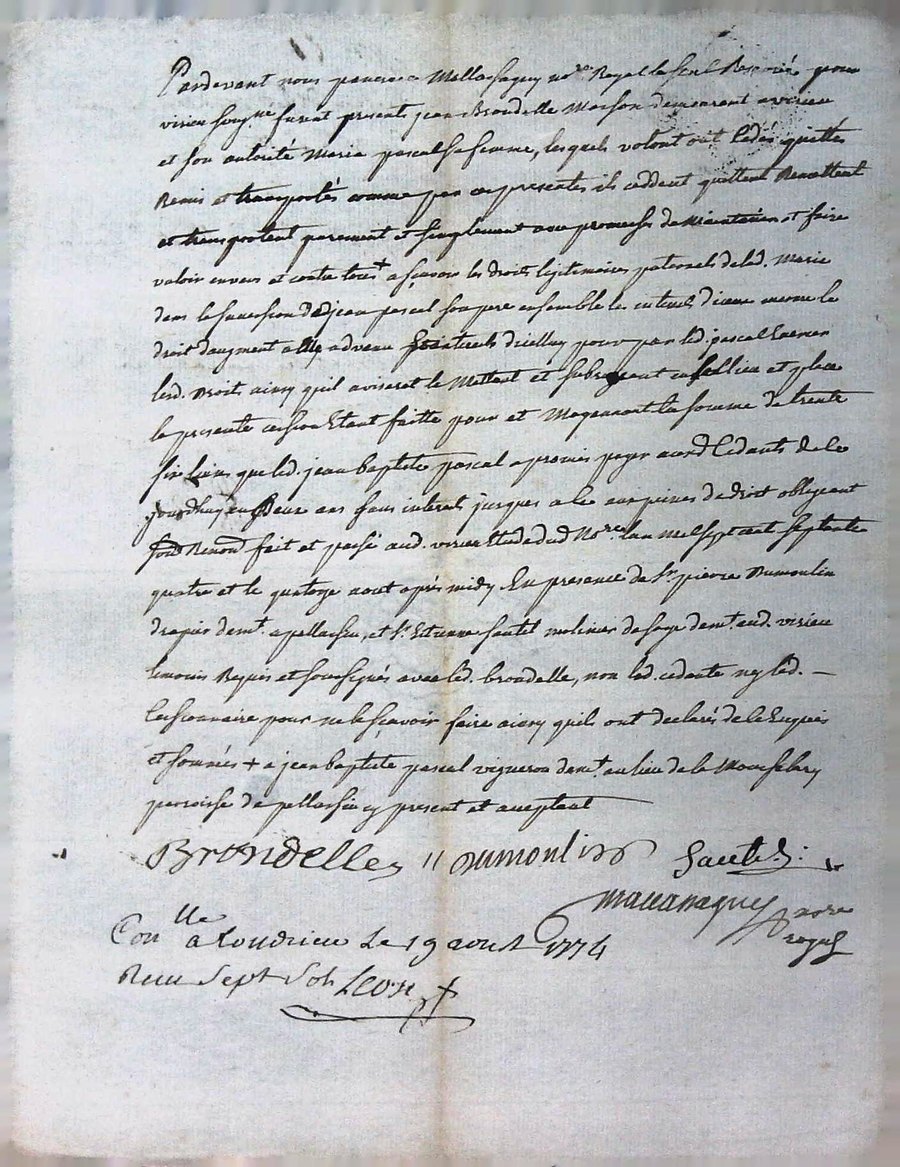 Pardevant nous notre Royal Reservé pour
virieu soigné furent presents jean Brondelle Masson demeurant a virieu
et son autorité Marie pascal sa femme, lesquels volont ont cedés quittés
Remis et transportés comme par ces presentes ils ceddent quittent Remettent
et transportent purement et simplement avec promesses de maintenir et faire
valoir envers et contre tous + a sçavoir les droits legitimaires paternels de lad. Marie
dans la succession de jean pascal son pere ensemble les interets d'iceux meme le
droit daugment a elle advenu pour par led. pascal
lesd. Droits ainsy quil aviserat le Mettant et subrogeant en lieu et place
la presente cession Etant faitte pour et Moyennant la somme de trente
six livres que led. jean baptiste pascal a promis payer auxd. Cedants de ce
jourdhuy en Deux ans sans interets jusques a ce aux peines de droit obligeant
fait et passé aud. virieu Etude dud No.re lan mil sept cent septante
quatre et le quatorze aout après midy En presence de Sr. pierre Dumoulin
drapier demt. a pellussin, et Sr. Etienne Sautel molinier de soye demt. aud. virieu
temoins Requis et soussignés avec led. brondelle, non lad. cedante ny led. —
Cessionnaire pour ne le sçavoir faire ainsy quils ont declarés de ce Enquis
et sommés + a jean baptiste pascal vigneron demt. au lieu de la
paroisse de pellussin cy present et acceptant
Brondelle Dumoulin Sautel
no.re
royal
Conlle a Condrieu Le 19 aout 1774
Recu Sept Sols